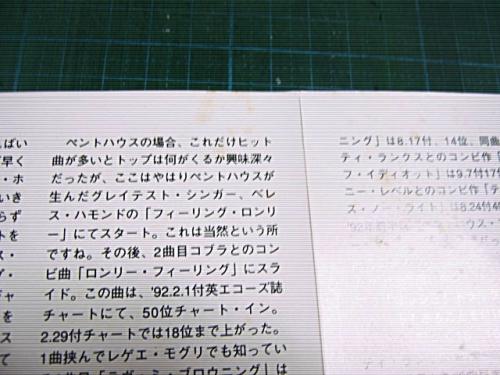 ばい
早く
・ホ
いき
らず
トを
ス・
グ・
ジャ
を
ス
て
ペントハウスの場合、これだけヒット
曲が多いとトップは何がくるか興味深々
だったが、ここはやはりペントハウスが
生んだグレイテスト・シンガー、ベレ
ス・ハモンドの「フィーリング・ロンリ
ー」にてスタート。これは当然という所
ですね。その後、2曲目コブラとのコン
ビ曲「ロンリー・フィーリング」にスラ
イド。この曲は、'92.2.1付英エコーズ誌
チャートにて、50位チャート・イン。
2.29付チャートでは18位まで上がった。
1曲挟んでレゲエ・モグリでも知ってい
ニング」は8.17付、14位、同曲
ティ・ランクスとのコンビ作「
フ・イディオット」は9.7付17
ニー・レベルとのコンビ作「テ
ス・ノー・ライト」は8.24付4